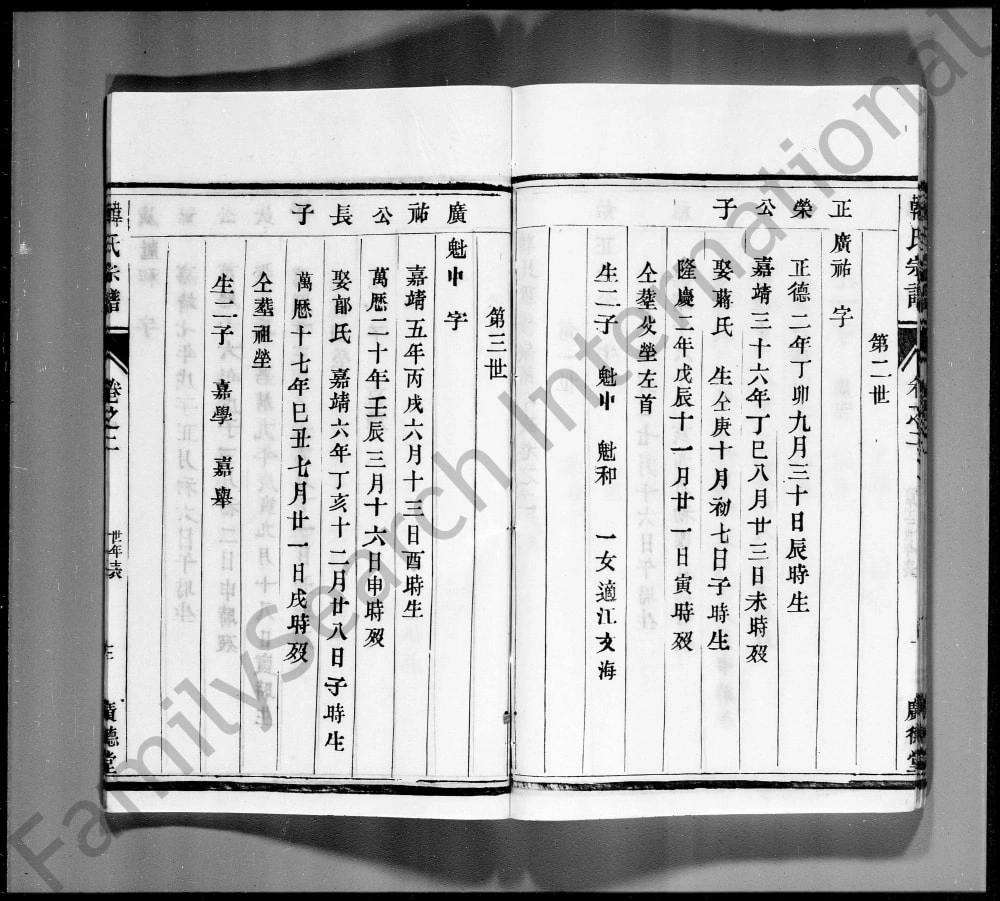 韓氏宗譜
卷之二
廣德堂
第二世
正榮公子
廣祐 字
正德二年丁卯九月三十日辰時生
嘉靖三十六年丁巳八月廿三日未時歿
娶蔣氏 生仝庚十月初七日子時生
隆慶二年戊辰十一月廿一日寅時歿
仝塟父塋左首
生二子 魁中 魁和 一女適江文海
第三世
廣祐公長子
魁中 字
嘉靖五年丙戌六月十三日酉時生
萬歷二十年壬辰三月十六日申時歿
娶郤氏 嘉靖六年丁亥十二月廿八日子時生
萬歷十七年己丑七月廿一日戌時歿
仝塟祖塋
生二子 嘉學 嘉舉
韓氏宗譜
卷之二
世年表
廣德堂
FamilySearch International